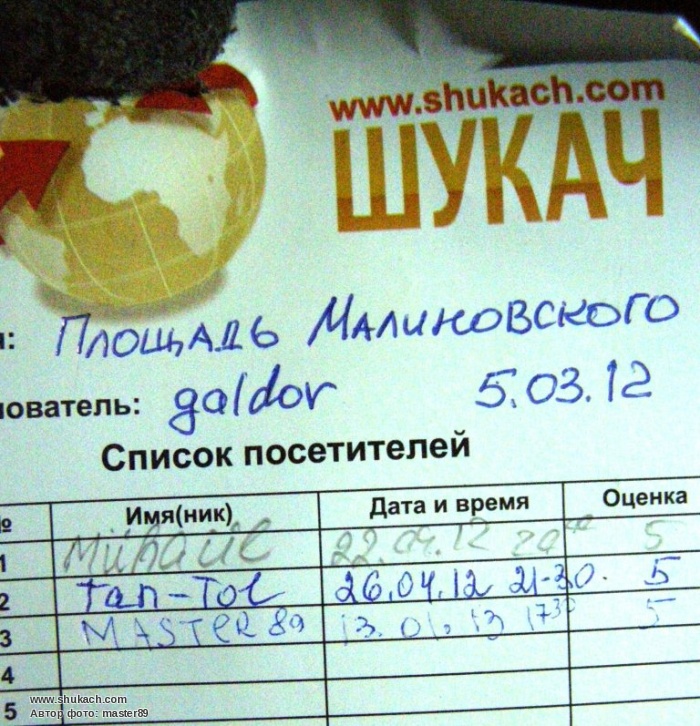 www.shukach.com
ШУКАЧ
Площадь Малиновского
нователь: galdor 5.03.12
Список посетителей
№ Имя(ник) Дата и время Оценка
1 22.04.12 5
2 Tan-Tol 26.04.12 21-30. 5
3 MASTER 89 13.01.13 17 30 5
4
5
www.shukach.com
Автор фото: master89